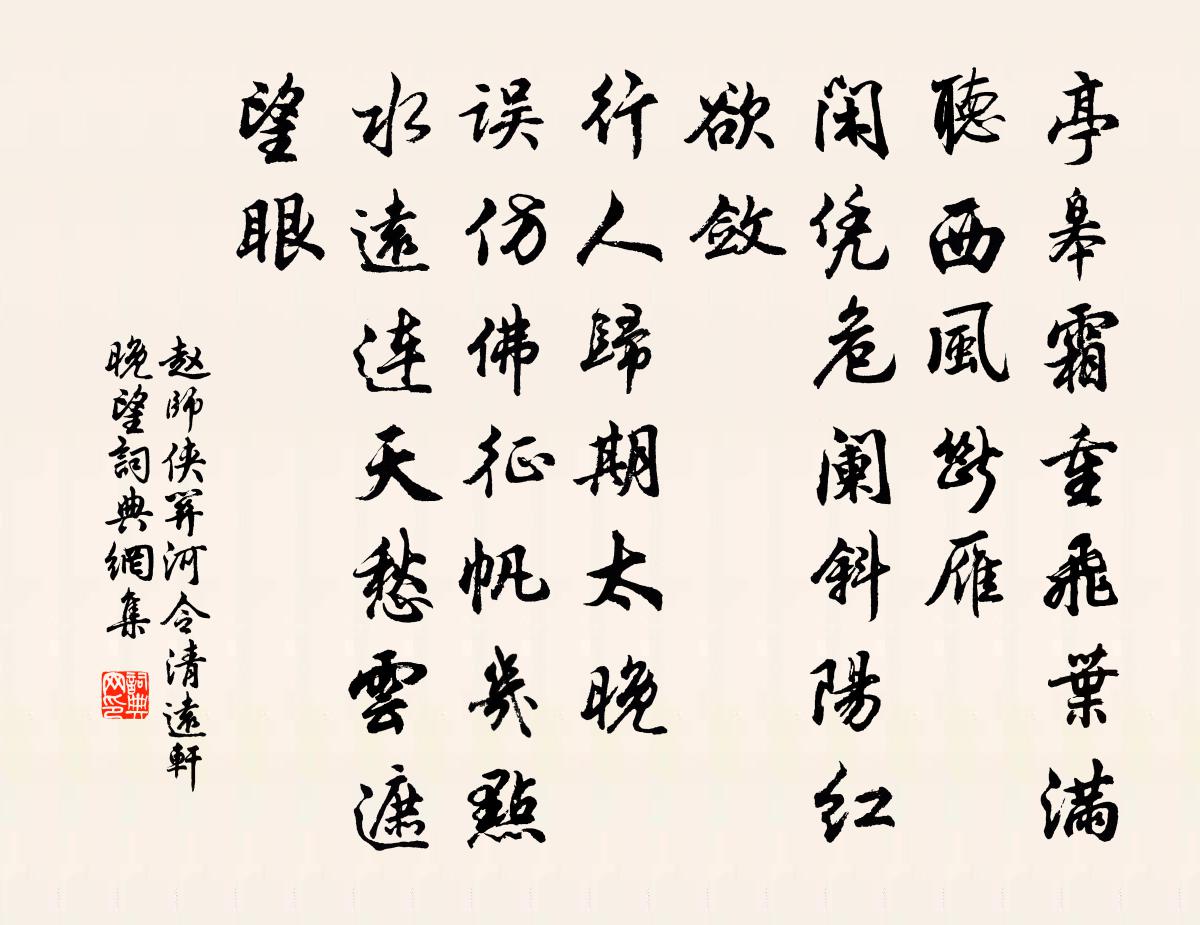 亭皋霜重飛葉满
聽西風斷雁
闲凭危阑斜陽红
欲斂
行人歸期太晚
误仿佛征帆幾點
水遠连天愁雲遮
望眼
赵師侠笄河令清遠軒
晚望詞典網集
詞典网印